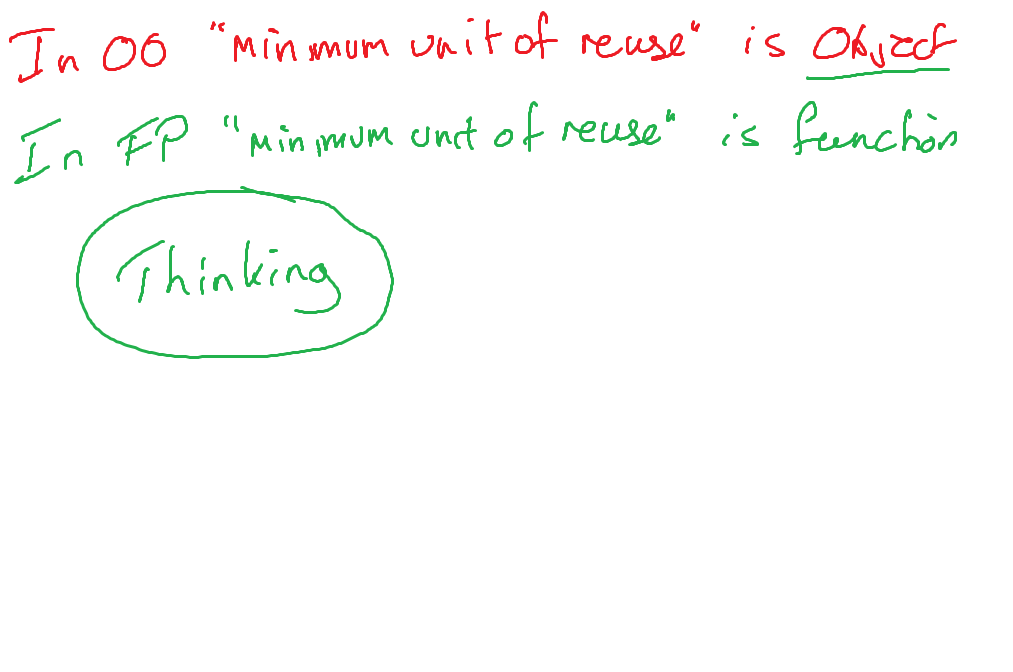 In OO "minimum unit of reuse" is Object
In FP "minimum unit of reuse" is function
Thinking